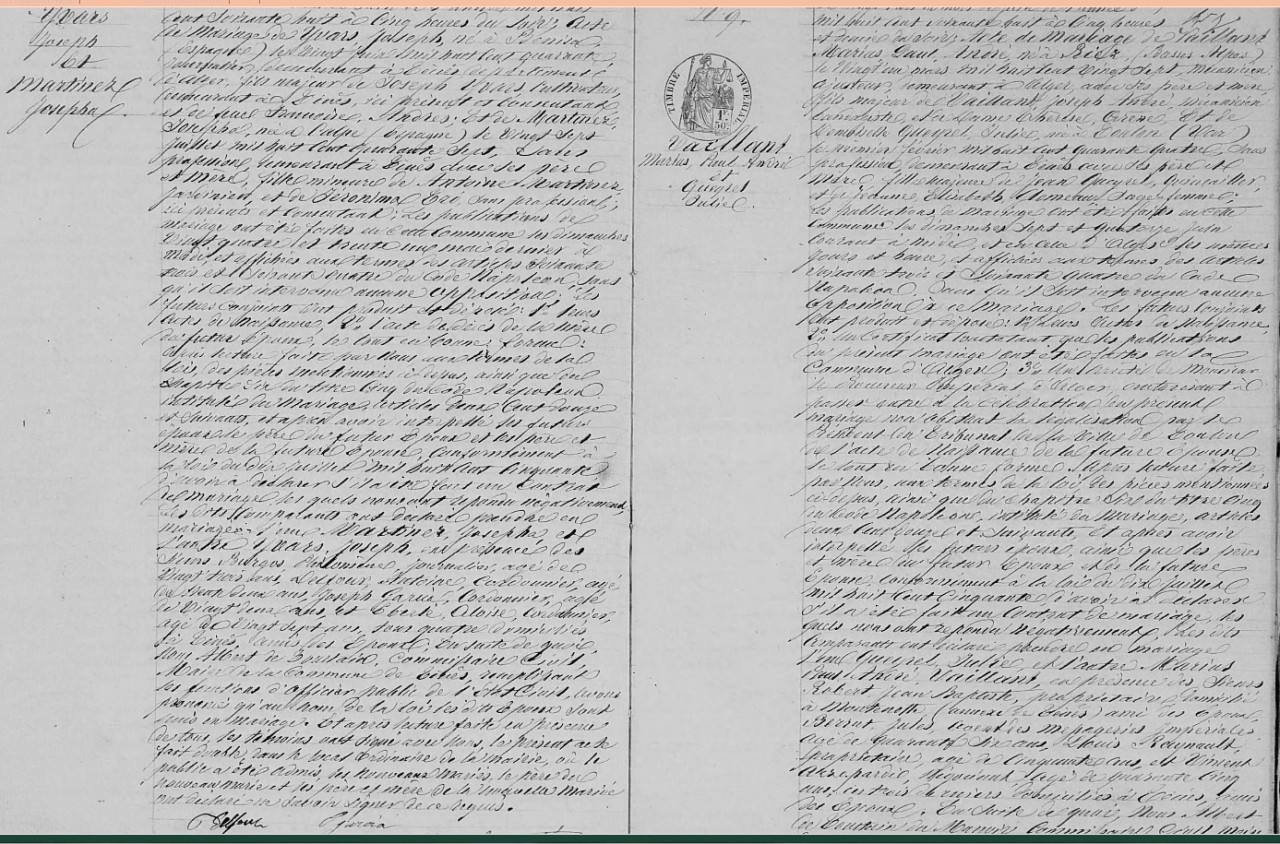 Yvars
Joseph
et
Martinez
Josepha
cent soixante huit à Cinq heures du soir, Acte
de Mariage de Yvars, Joseph, né à Benisa
(Espagne) le vingt juin mil huit cent quarante
demeurant à Ténès, département
d'Alger, fils majeur de Joseph Yvars cultivateur,
demeurant à Ténès, ici présent et Consentant
et de feue Françoise, Andrès; Et de Martinez,
Josepha, née à (Espagne) le vingt sept
juillet mil huit cent quarante sept, Sans
profession, demeurant à Ténès avec ses père
et mère, fille mineure de Antoine Martinez
jardinier, et de Géronima sans profession;
ici présents et Consentant; Les publications de
mariage ont été faites en cette Commune les dimanches
vingt quatre et trente un mai dernier à
Midi, et affichées aux termes des articles Soixante
trois et Soixante quatre du Code Napoléon, sans
qu'il soit intervenu aucune opposition; Les
futurs Conjoints ont produit et déposé: 1° leurs
actes de Naissance, 2° l'acte de décès de la mère
du futur Epoux, le tout en bonne forme:
Après lecture faite par Nous aux termes de la
loi, des pièces mentionnées ci-dessus, ainsi que du
Chapitre Six du titre Cinq du Code Napoléon
intitulé du Mariage, articles deux Cent douze
et Suivants, et après avoir interpellé les futurs
époux, le père du futur Epoux et les père et
mère de la future Epouse, Conformément à
la loi du dix juillet mil huit cent Cinquante
d'avoir à déclarer s'il a été fait un Contrat
de mariage, les quels nous ont répondu négativement,
Les dits Comparants ont déclaré prendre en
mariage; l'une Martinez, Josepha, et
l'autre Yvars, Joseph, en présence des
Sieurs Burgos, journalier, agé de
vingt trois ans, Delfour, Antoine, Cordonnier, agé
de trente deux ans, Joseph Garcia, Cordonnier, agé
de vingt deux ans, et Aloïse, Cordonnier,
agé de vingt sept ans, tous quatre domiciliés
à Ténès, amis des Epoux; En suite de quoi,
Nous Albert de Commissaire Civil
Maire de la Commune de Ténès, remplissant
les fonctions d'Officier public de l'Etat Civil, avons
prononcé qu'au nom de la loi les dits Epoux Sont
unis en mariage. Et après lecture faite en présence
de tous, les témoins ont signé avec Nous, le présent acte
fait double, dans le local Ordinaire de la mairie, où le
public a été admis, les nouveaux mariés, le père du
nouveau marié et les père et mère de la nouvelle mariée
ont déclaré ne savoir signer de ce requis.
Delfour Garcia
N° 9.
TIMBRE IMPERIAL
1F
50C
Vaillant
Marius, Paul André
et
Queyrel
Julie
mil huit cent soixante huit à Cinq heures
Acte de Mariage de Vaillant
Marius, Paul, André, né à Riez, (Basses Alpes)
le vingt un mars mil huit cent vingt sept, mécanicien
demeurant à Alger, avec ses père et mère
fils majeur de Vaillant, Joseph André
et de Dame Thérèse, Et de
Demoiselle Queyrel, Julie, née à Toulon (Var)
le premier février mil huit cent quarante quatre, Sans
profession demeurant à Ténès avec ses père et
mère, fille majeure de Jean Queyrel, Quincailler,
et de Jeanne, Elisabeth, Sage femme;
Les publications de mariage ont été faites en cette
Commune les dimanches Sept et Quatorze juin
Courant à midi, et en celle d'Alger les mêmes
jours et heure, et affichées aux termes des articles
Soixante trois et Soixante quatre du Code
Napoléon, Sans qu'il soit intervenu aucune
opposition à ce mariage. Les futurs Conjoints
ont produit et déposé: 1° Leurs Actes de Naissance,
2° un Certificat Constatant que les publications
du présent mariage ont été faites en la
Commune d'Alger, 3° de Monsieur
le Procureur Impérial d'Alger, autorisant à
passer outre à la Célébration du présent
mariage la légalisation par le
Président du Tribunal de la Ville de Toulon
de l'acte de Naissance de la future Epouse
le tout en bonne forme. Après lecture faite
par Nous, aux termes de la loi, des pièces mentionnées
ci-dessus, ainsi que du Chapitre Six du titre Cinq
du Code Napoléon, intitulé du Mariage, articles
deux cent douze et Suivants, et après avoir
interpellé les futurs époux, ainsi que les pères
et mères du futur Epoux et de la future
Epouse, Conformément à la loi du dix juillet
mil huit cent Cinquante d'avoir à déclarer
s'il a été fait un Contrat de mariage, les
quels nous ont répondu Négativement, Les dits
Comparants ont déclaré prendre en mariage
l'une Queyrel, Julie, et l'autre Marius
Paul André Vaillant, en présence des Sieurs
Robert, Jean Baptiste, propriétaire, domicilié
à Montenotte (annexe de Ténès) ami des Epoux,
Jules, agent des messageries Impériales
agé de Quarante Six ans, Louis
propriétaire, agé de Cinquante ans, et Vincent
Négociant, agé de Quarante Cinq
ans, ces trois derniers domiciliés à Ténès, amis
des Epoux. En suite de quoi, Nous Albert
Commissaire Civil, Maire